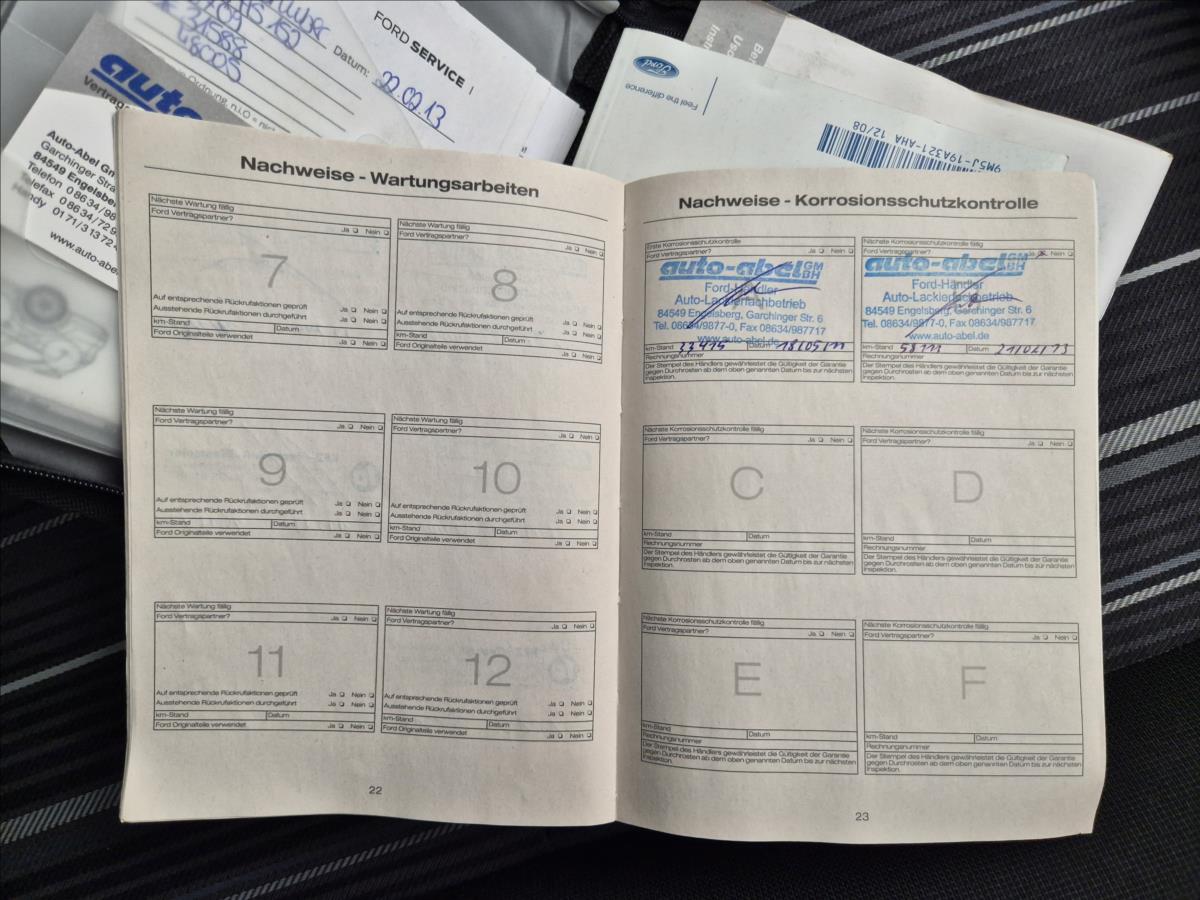 FORD SERVICE
Datum: 22.02.13
auto
Vertrags
Auto-Abel Gm
Garchinger Stra
84549 Engelsbe
Telefon 0 86 34/98
Telefax 0 86 34/72 9
Handy 01 71/3 13 72
www.auto-abel
Ford
Feel the difference
9M5J-19A321-AHA 12/08
Nachweise - Wartungsarbeiten
Nächste Wartung fällig
Ford Vertragspartner?
Ja Nein
7
Auf entsprechende Rückrufaktionen geprüft Ja Nein
Ausstehende Rückrufaktionen durchgeführt Ja Nein
km-Stand Datum
Ford Originalteile verwendet Ja Nein
Nächste Wartung fällig
Ford Vertragspartner?
Ja Nein
8
Auf entsprechende Rückrufaktionen geprüft Ja Nein
Ausstehende Rückrufaktionen durchgeführt Ja Nein
km-Stand Datum
Ford Originalteile verwendet Ja Nein
Nächste Wartung fällig
Ford Vertragspartner?
Ja Nein
9
Auf entsprechende Rückrufaktionen geprüft Ja Nein
Ausstehende Rückrufaktionen durchgeführt Ja Nein
km-Stand Datum
Ford Originalteile verwendet Ja Nein
Nächste Wartung fällig
Ford Vertragspartner?
Ja Nein
10
Auf entsprechende Rückrufaktionen geprüft Ja Nein
Ausstehende Rückrufaktionen durchgeführt Ja Nein
km-Stand Datum
Ford Originalteile verwendet Ja Nein
Nächste Wartung fällig
Ford Vertragspartner?
Ja Nein
11
Auf entsprechende Rückrufaktionen geprüft Ja Nein
Ausstehende Rückrufaktionen durchgeführt Ja Nein
km-Stand Datum
Ford Originalteile verwendet Ja Nein
Nächste Wartung fällig
Ford Vertragspartner?
Ja Nein
12
Auf entsprechende Rückrufaktionen geprüft Ja Nein
Ausstehende Rückrufaktionen durchgeführt Ja Nein
km-Stand Datum
Ford Originalteile verwendet Ja Nein
22
Nachweise - Korrosionsschutzkontrolle
Erste Korrosionsschutzkontrolle
Ford Vertragspartner? Ja Nein
auto-abel GMBH
Ford-Händler
Auto-Lackierfachbetrieb
84549 Engelsberg, Garchinger Str. 6
Tel. 08634/9877-0, Fax 08634/987717
www.auto-abel.de
km-Stand Datum
Rechnungsnummer
Der Stempel des Händlers gewährleistet die Gültigkeit der Garantie
gegen Durchrosten ab dem oben genannten Datum bis zur nächsten
Inspektion.
Nächste Korrosionsschutzkontrolle fällig
Ford Vertragspartner? Ja Nein
auto-abel GMBH
Ford-Händler
Auto-Lackierfachbetrieb
84549 Engelsberg, Garchinger Str. 6
Tel. 08634/9877-0, Fax 08634/987717
www.auto-abel.de
km-Stand Datum
Rechnungsnummer
Der Stempel des Händlers gewährleistet die Gültigkeit der Garantie
gegen Durchrosten ab dem oben genannten Datum bis zur nächsten
Inspektion.
Nächste Korrosionsschutzkontrolle fällig
Ford Vertragspartner? Ja Nein
C
km-Stand Datum
Rechnungsnummer
Der Stempel des Händlers gewährleistet die Gültigkeit der Garantie
gegen Durchrosten ab dem oben genannten Datum bis zur nächsten
Inspektion.
Nächste Korrosionsschutzkontrolle fällig
Ford Vertragspartner? Ja Nein
D
km-Stand Datum
Rechnungsnummer
Der Stempel des Händlers gewährleistet die Gültigkeit der Garantie
gegen Durchrosten ab dem oben genannten Datum bis zur nächsten
Inspektion.
Nächste Korrosionsschutzkontrolle fällig
Ford Vertragspartner? Ja Nein
E
km-Stand Datum
Rechnungsnummer
Der Stempel des Händlers gewährleistet die Gültigkeit der Garantie
gegen Durchrosten ab dem oben genannten Datum bis zur nächsten
Inspektion.
Nächste Korrosionsschutzkontrolle fällig
Ford Vertragspartner? Ja Nein
F
km-Stand Datum
Rechnungsnummer
Der Stempel des Händlers gewährleistet die Gültigkeit der Garantie
gegen Durchrosten ab dem oben genannten Datum bis zur nächsten
Inspektion.
23